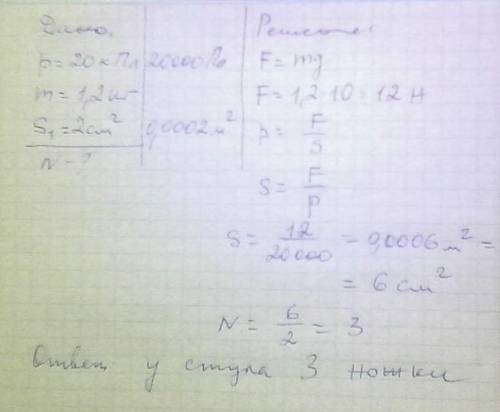 Дано:
p = 20 кПа 20000 Па
m = 1,2 кг
S₁ = 2 см² 0,0002 м²
N - ?
Решение:
F = mg
F = 1,2 · 10 = 12 Н
p = F/S
S = F/p
S = 12/20000 = 0,0006 м² =
= 6 см²
N = 6/2 = 3
Ответ у стула 3 ножки